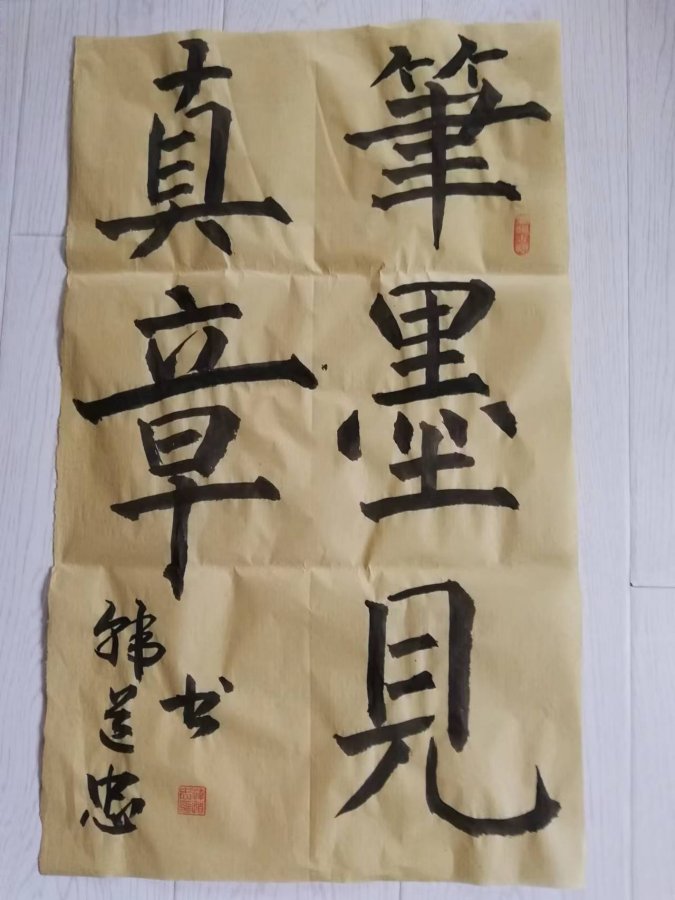 筆墨見
真章
韩道忠
书